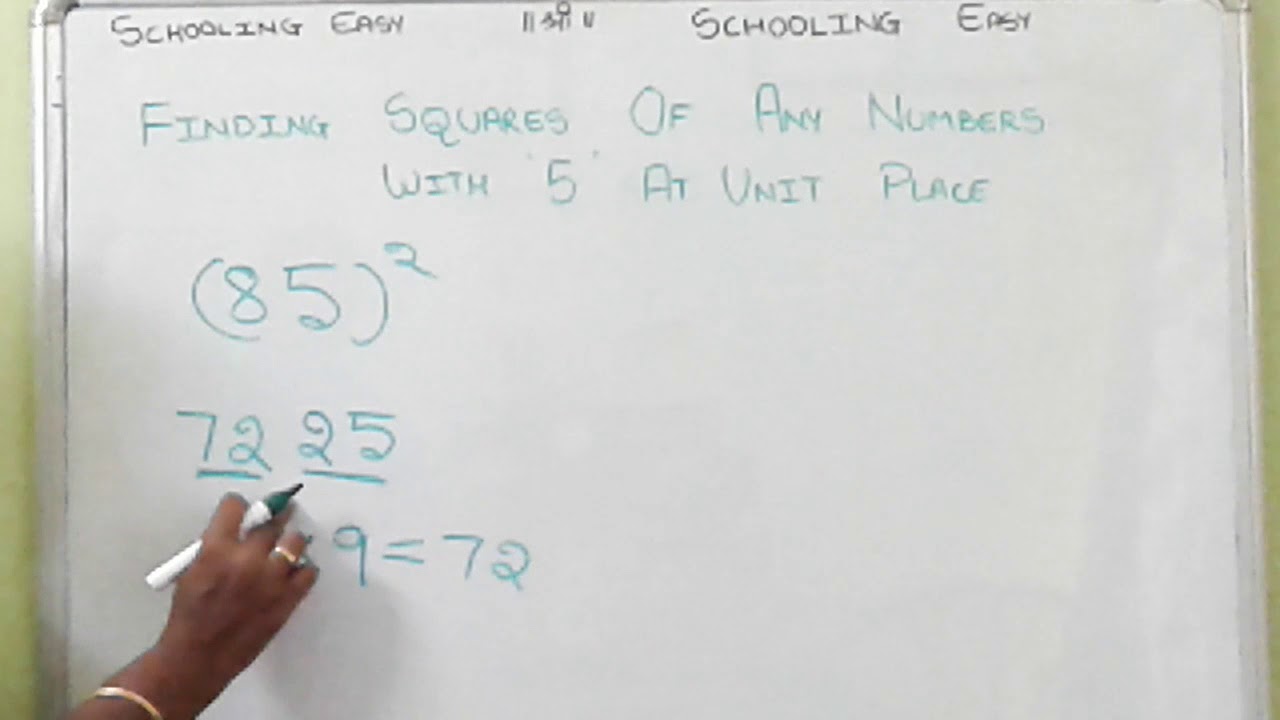 SCHOOLING EASY ॥ श्री ॥ SCHOOLING EASY
FINDING SQUARES OF ANY NUMBERS
WITH '5' AT UNIT PLACE
(85)²
72 25
9 = 72